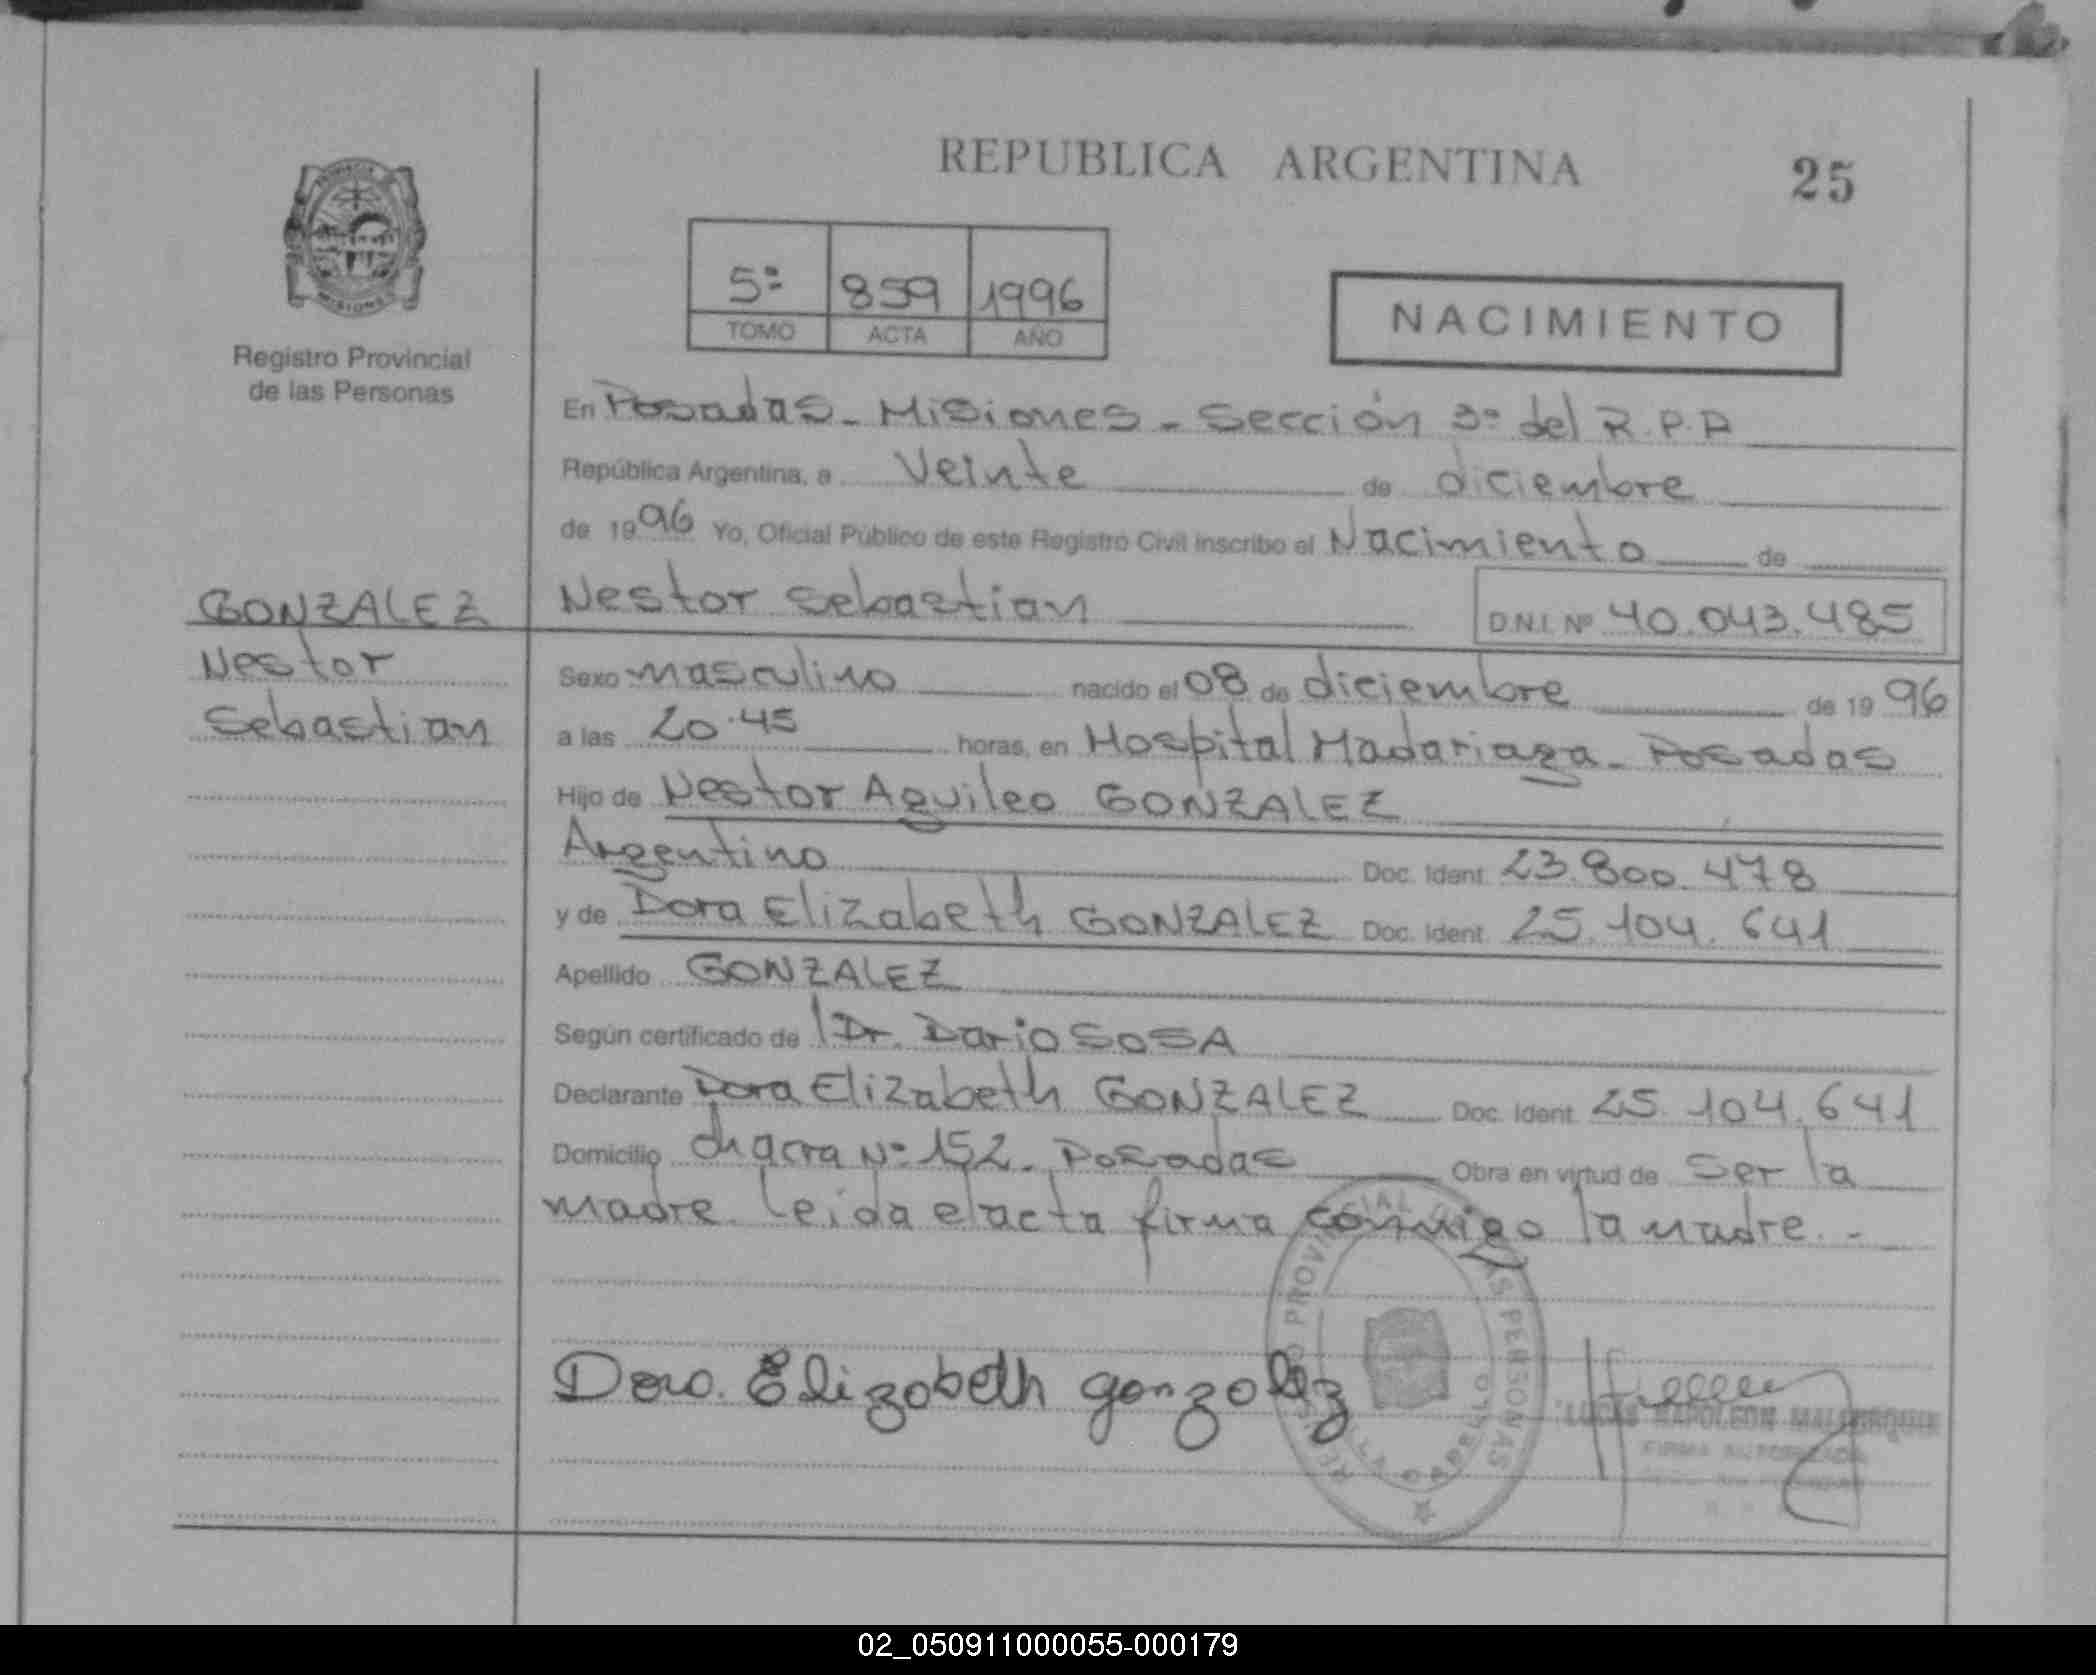 REPUBLICA ARGENTINA
25
5ª 859 1996
TOMO ACTA AÑO
NACIMIENTO
MISIONES
Registro Provincial
de las Personas
En Posadas - Misiones - Sección 3ª del R.P.P
República Argentina, a Veinte de diciembre
de 1996 Yo, Oficial Público de este Registro Civil inscribo el Nacimiento de
Nestor Sebastian D.N.I. Nº 40.043.485
GONZALEZ
Nestor
Sebastian
Sexo masculino nacido el 08 de diciembre de 1996
a las 20.45 horas, en Hospital Madariaga - Posadas
Hijo de Nestor Aguileo GONZALEZ
Argentino Doc. Ident. 23.800.478
y de Dora Elizabeth GONZALEZ Doc. Ident. 25.104.641
Apellido GONZALEZ
Según certificado de Dr. Dario SOSA
Declarante Dora Elizabeth GONZALEZ Doc. Ident. 25.104.641
Domicilio chacra Nº 152 - Posadas Obra en virtud de ser la
madre. leida el acta firma conmigo la madre. -
Dora Elizabeth gonzalez
PROVINCIAL LAS PERSONAS
LUCAS NAPOLEON
FIRMA AUTORIZADA
02_050911000055-000179